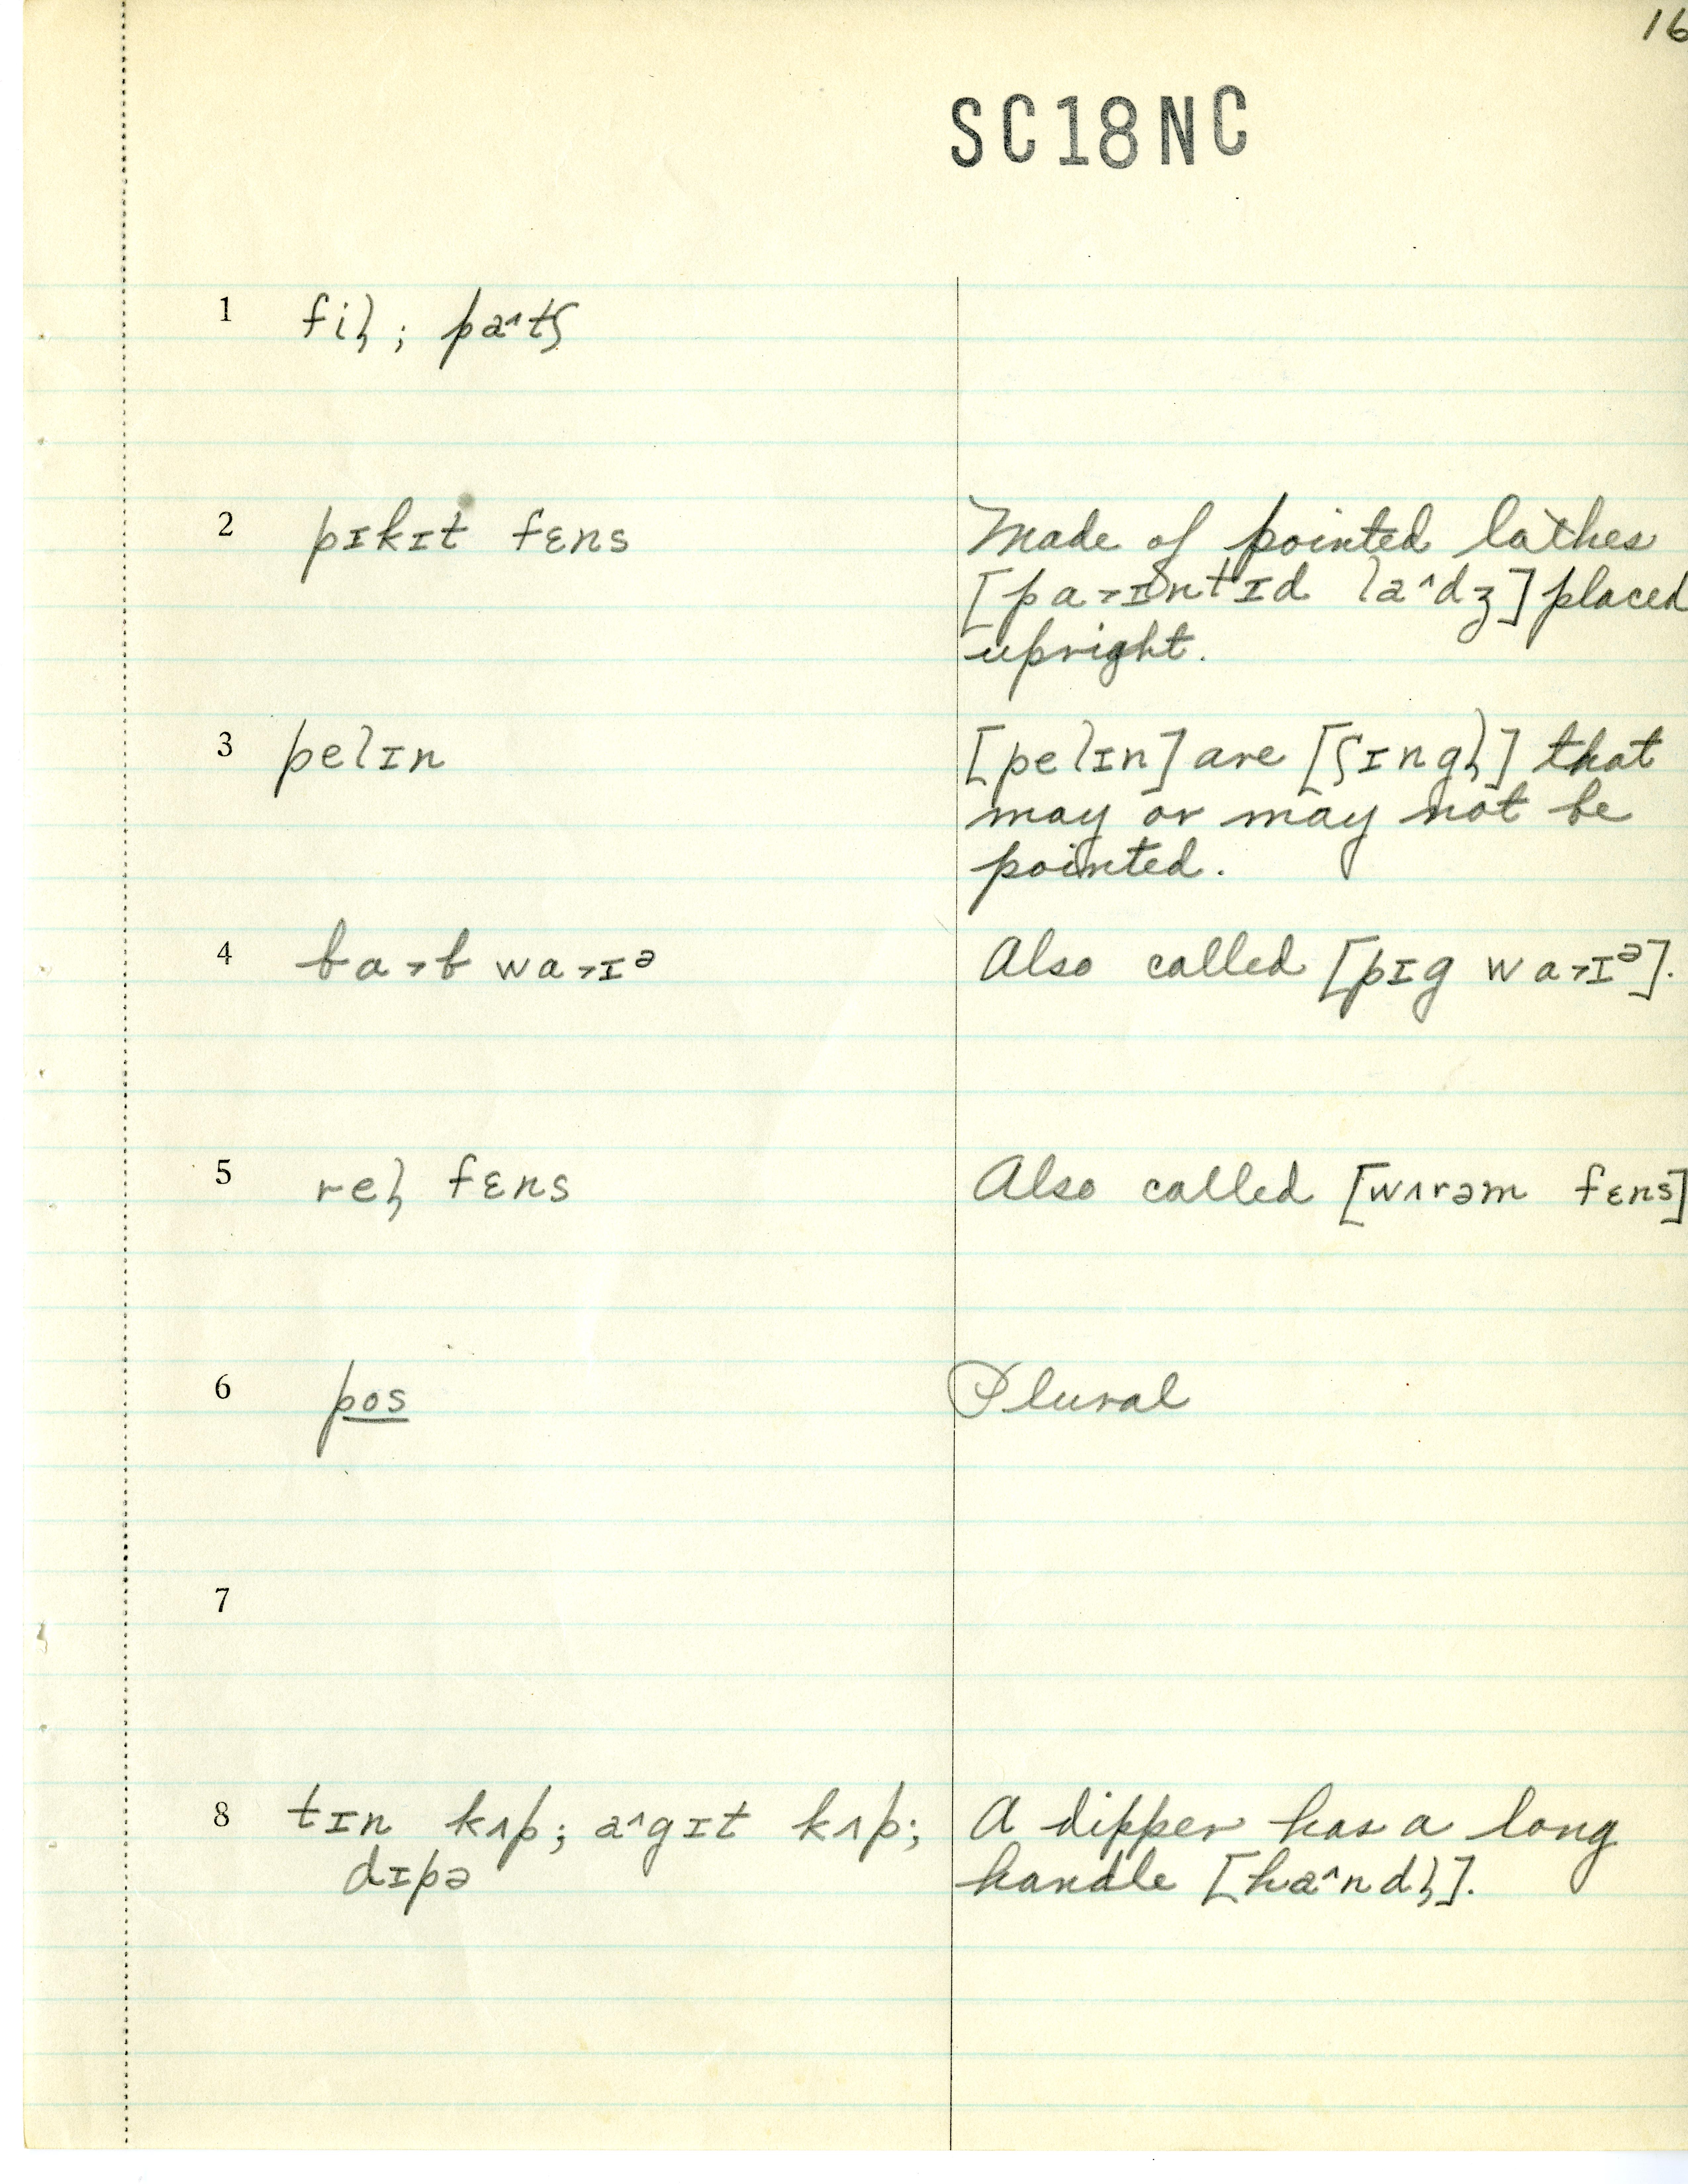 16
SC18NC
1 fil̩; pa^tʃ
2 pɪkɪt fɛns
Made of pointed lathes
[pa˃ɪntɪd la^dʒ] placed
upright.
3 pelɪn
[pelɪn] are [ʃɪngl̩] that
may or may not be
pointed.
4 ba˃b wa˃ɪᵊ
Also called [pɪg wa˃ɪᵊ].
5 rel̩ fɛns
Also called [wʌrəm fɛns]
6 pos
Plural
7
8 tɪn kʌp; a^gɪt kʌp;
dɪpə
A dipper has a long
handle [ha^ndl̩].